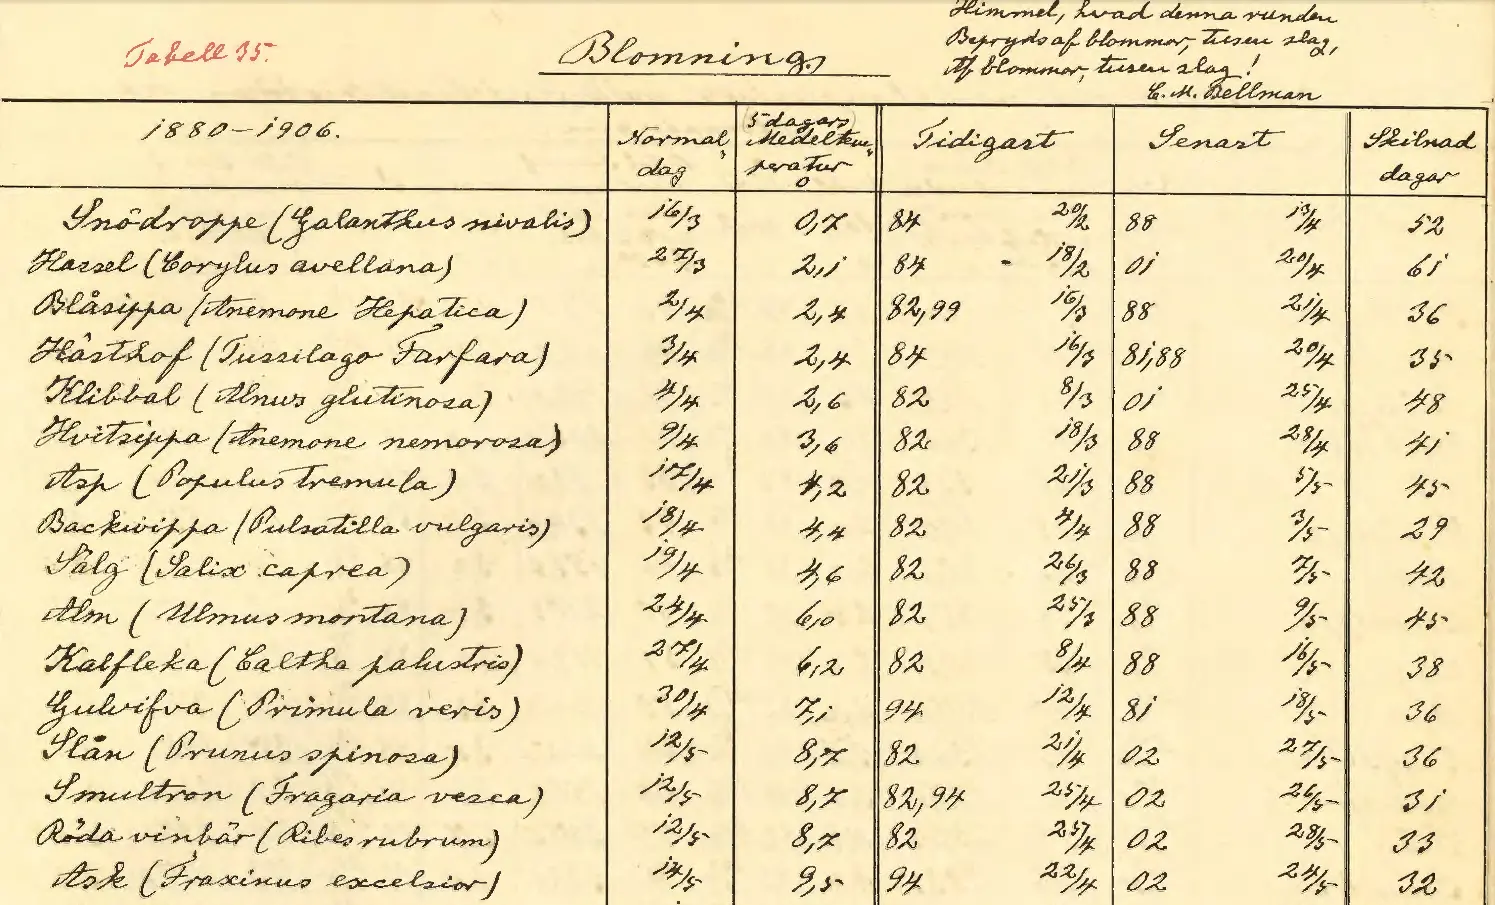 Himmel, hvad denna runden
Tabell 35. Blomning. Bepryds af blommor, tusen slag,
Af blommor, tusen slag!
C. M. Bellman
1880-1906. Normal- (5 dagars) Tidigast Senast Skilnad
dag Medeltem- dagar
peratur
o
Snödroppe (Galanthus nivalis) 16/3 0,7 84 20/2 88 13/4 52
Hassel (Corylus avellana) 27/3 2,1 84 18/2 01 20/4 61
Blåsippa (Anemone Hepatica) 2/4 2,4 82,99 16/3 88 21/4 36
Hästhof (Tussilago Farfara) 3/4 2,4 84 16/3 81,88 20/4 35
Klibbal (Alnus glutinosa) 4/4 2,6 82 8/3 01 25/4 48
Hvitsippa (Anemone nemorosa) 9/4 3,6 82 18/3 88 28/4 41
Asp (Populus tremula) 17/4 4,2 82 21/3 88 5/5 45
Backsippa (Pulsatilla vulgaris) 18/4 4,4 82 4/4 88 3/5 29
Sälg (Salix caprea) 19/4 4,6 82 26/3 88 7/5 42
Alm (Ulmus montana) 24/4 6,0 82 25/3 88 9/5 45
Kalfleka (Caltha palustris) 27/4 6,2 82 8/4 88 16/5 38
Gulvifva (Primula veris) 30/4 7,1 94 12/4 81 18/5 36
Slån (Prunus spinosa) 12/5 8,7 82 21/4 02 27/5 36
Smultron (Fragaria vesca) 12/5 8,7 82,94 25/4 02 26/5 31
Röda vinbär (Ribes rubrum) 12/5 8,7 82 25/4 02 28/5 33
Ask (Fraxinus excelsior) 14/5 9,5 94 22/4 02 24/5 32